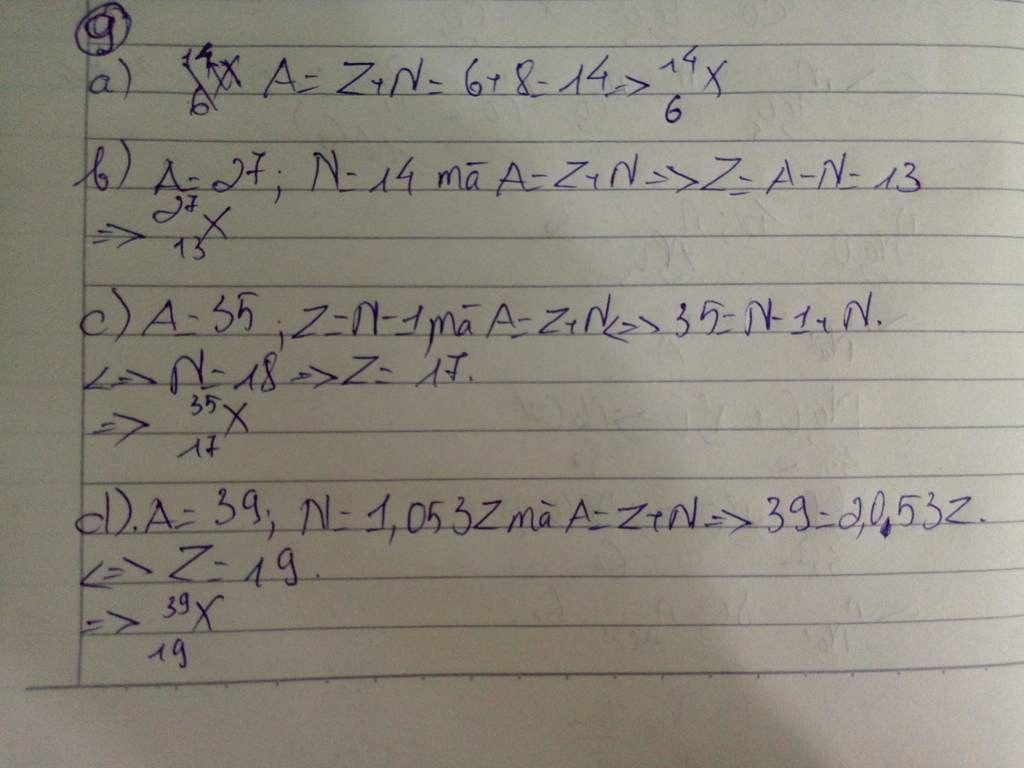 9
a) ¹⁴₆X A = Z+N = 6+8 = 14 => ¹⁴₆X
b) A = 27; N = 14 mà A = Z+N => Z = A-N = 13
=> ²⁷₁₃X
c) A = 35; Z = N-1 mà A = Z+N <=> 35 = N-1+N.
<=> N = 18 => Z = 17.
=> ³⁵₁₇X
d). A = 39; N = 1,053Z mà A = Z+N => 39 = 2,053Z.
<=> Z = 19.
=> ³⁹₁₉X